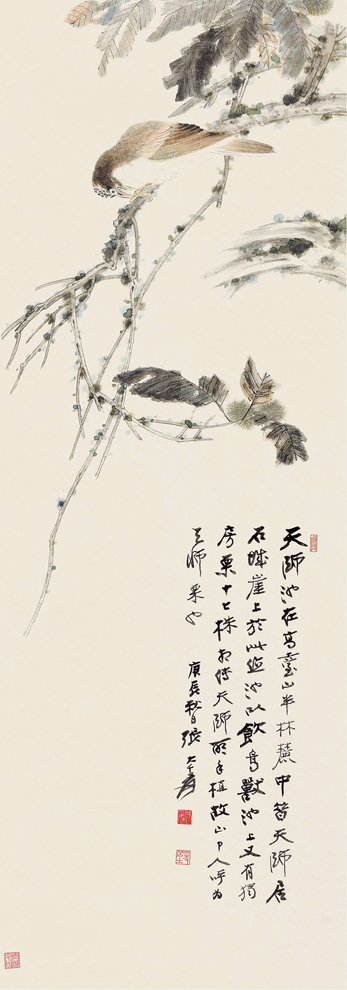 天師池在高臺山半林麓中昔天師居
石城崖上於此鑿池以飲鳥獸池上又有獨
房栗十七株相傳天師所手植故山中人呼為
天師栗也
庚辰秋日張大千爰